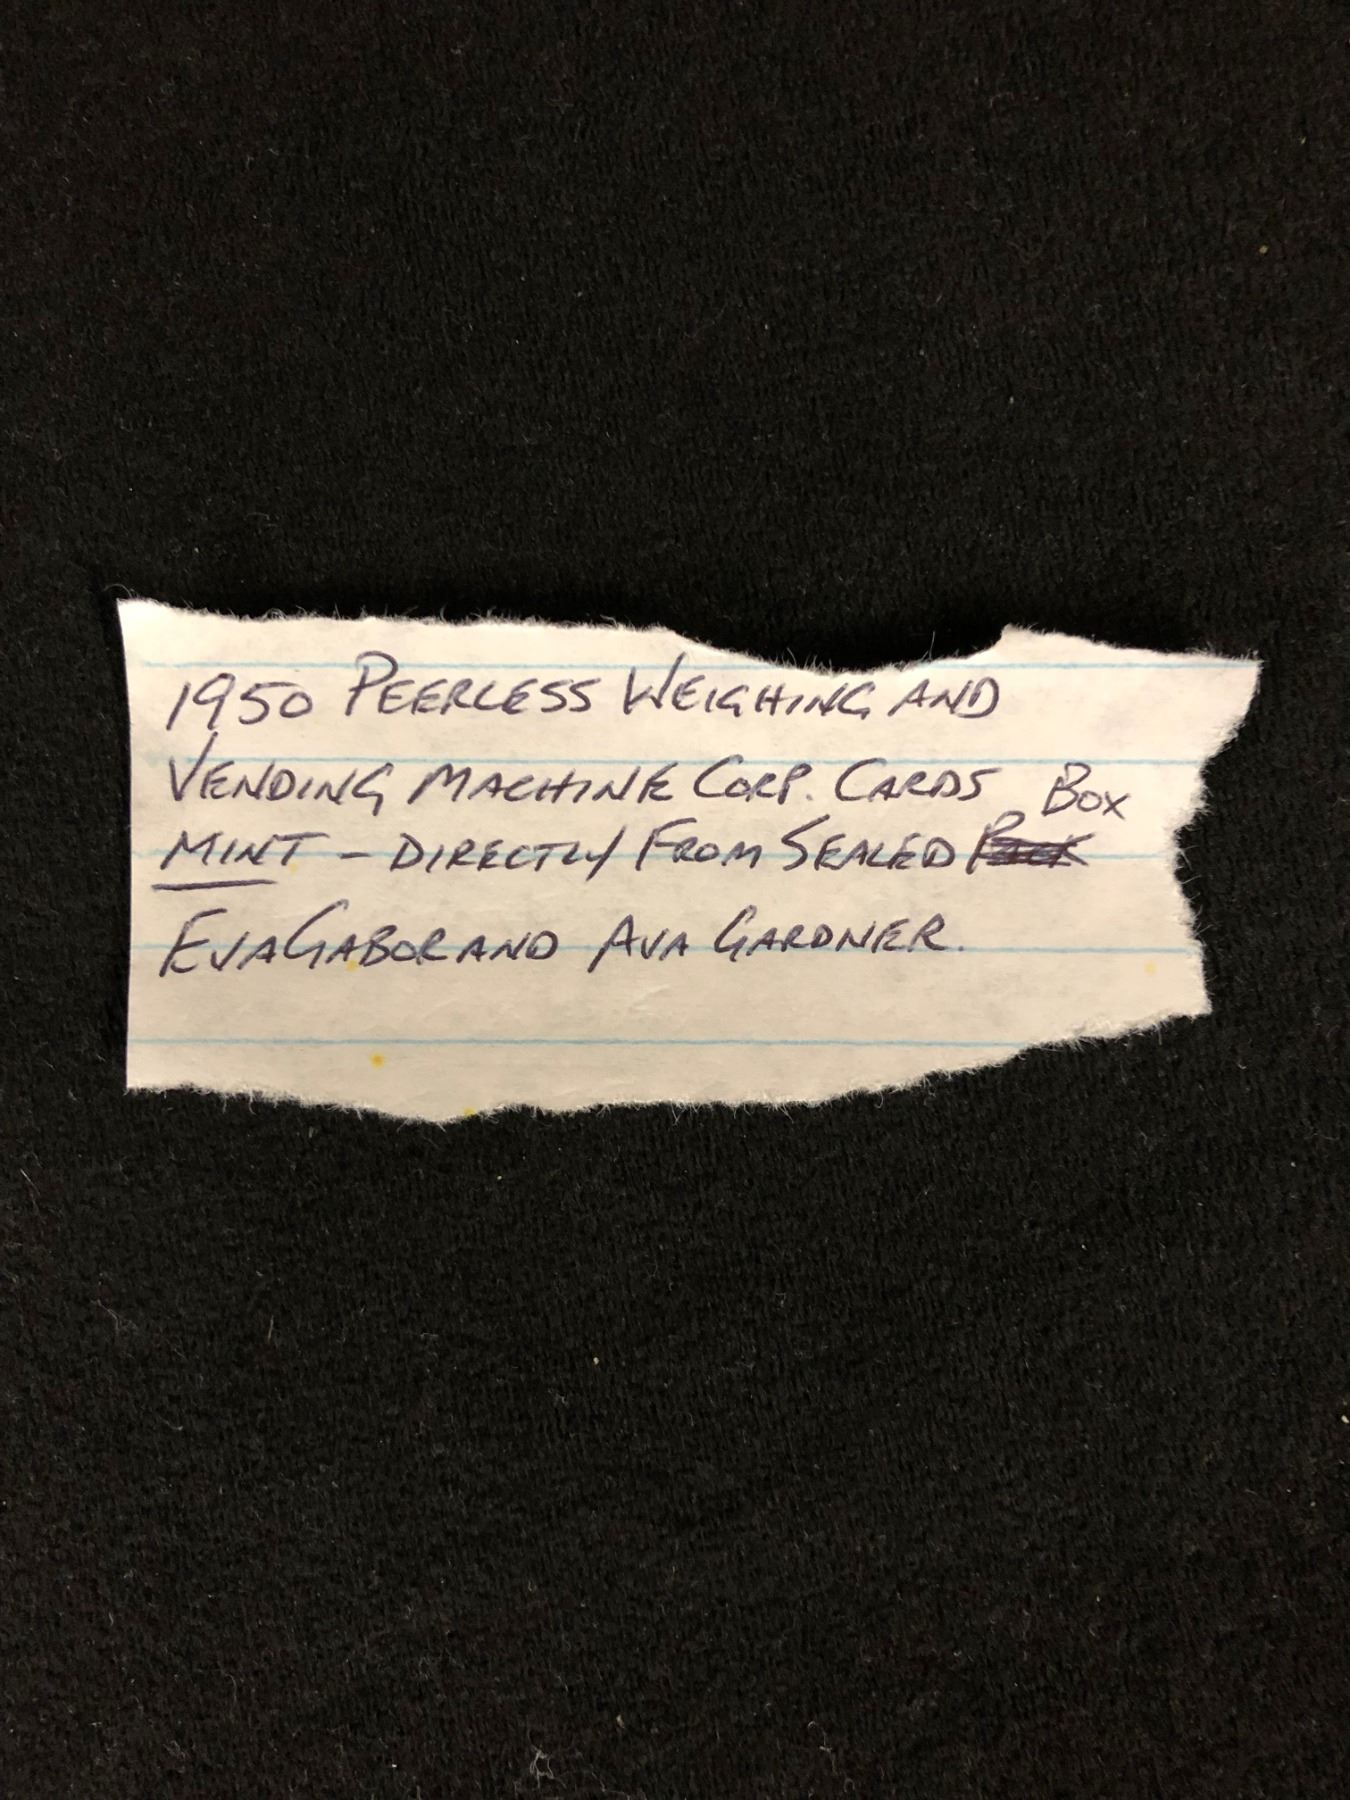 1950 PEERLESS WEIGHING AND
VENDING MACHINE CORP. CARDS
MINT - DIRECTLY FROM SEALED Box
EVA GABOR AND AVA GARDNER.